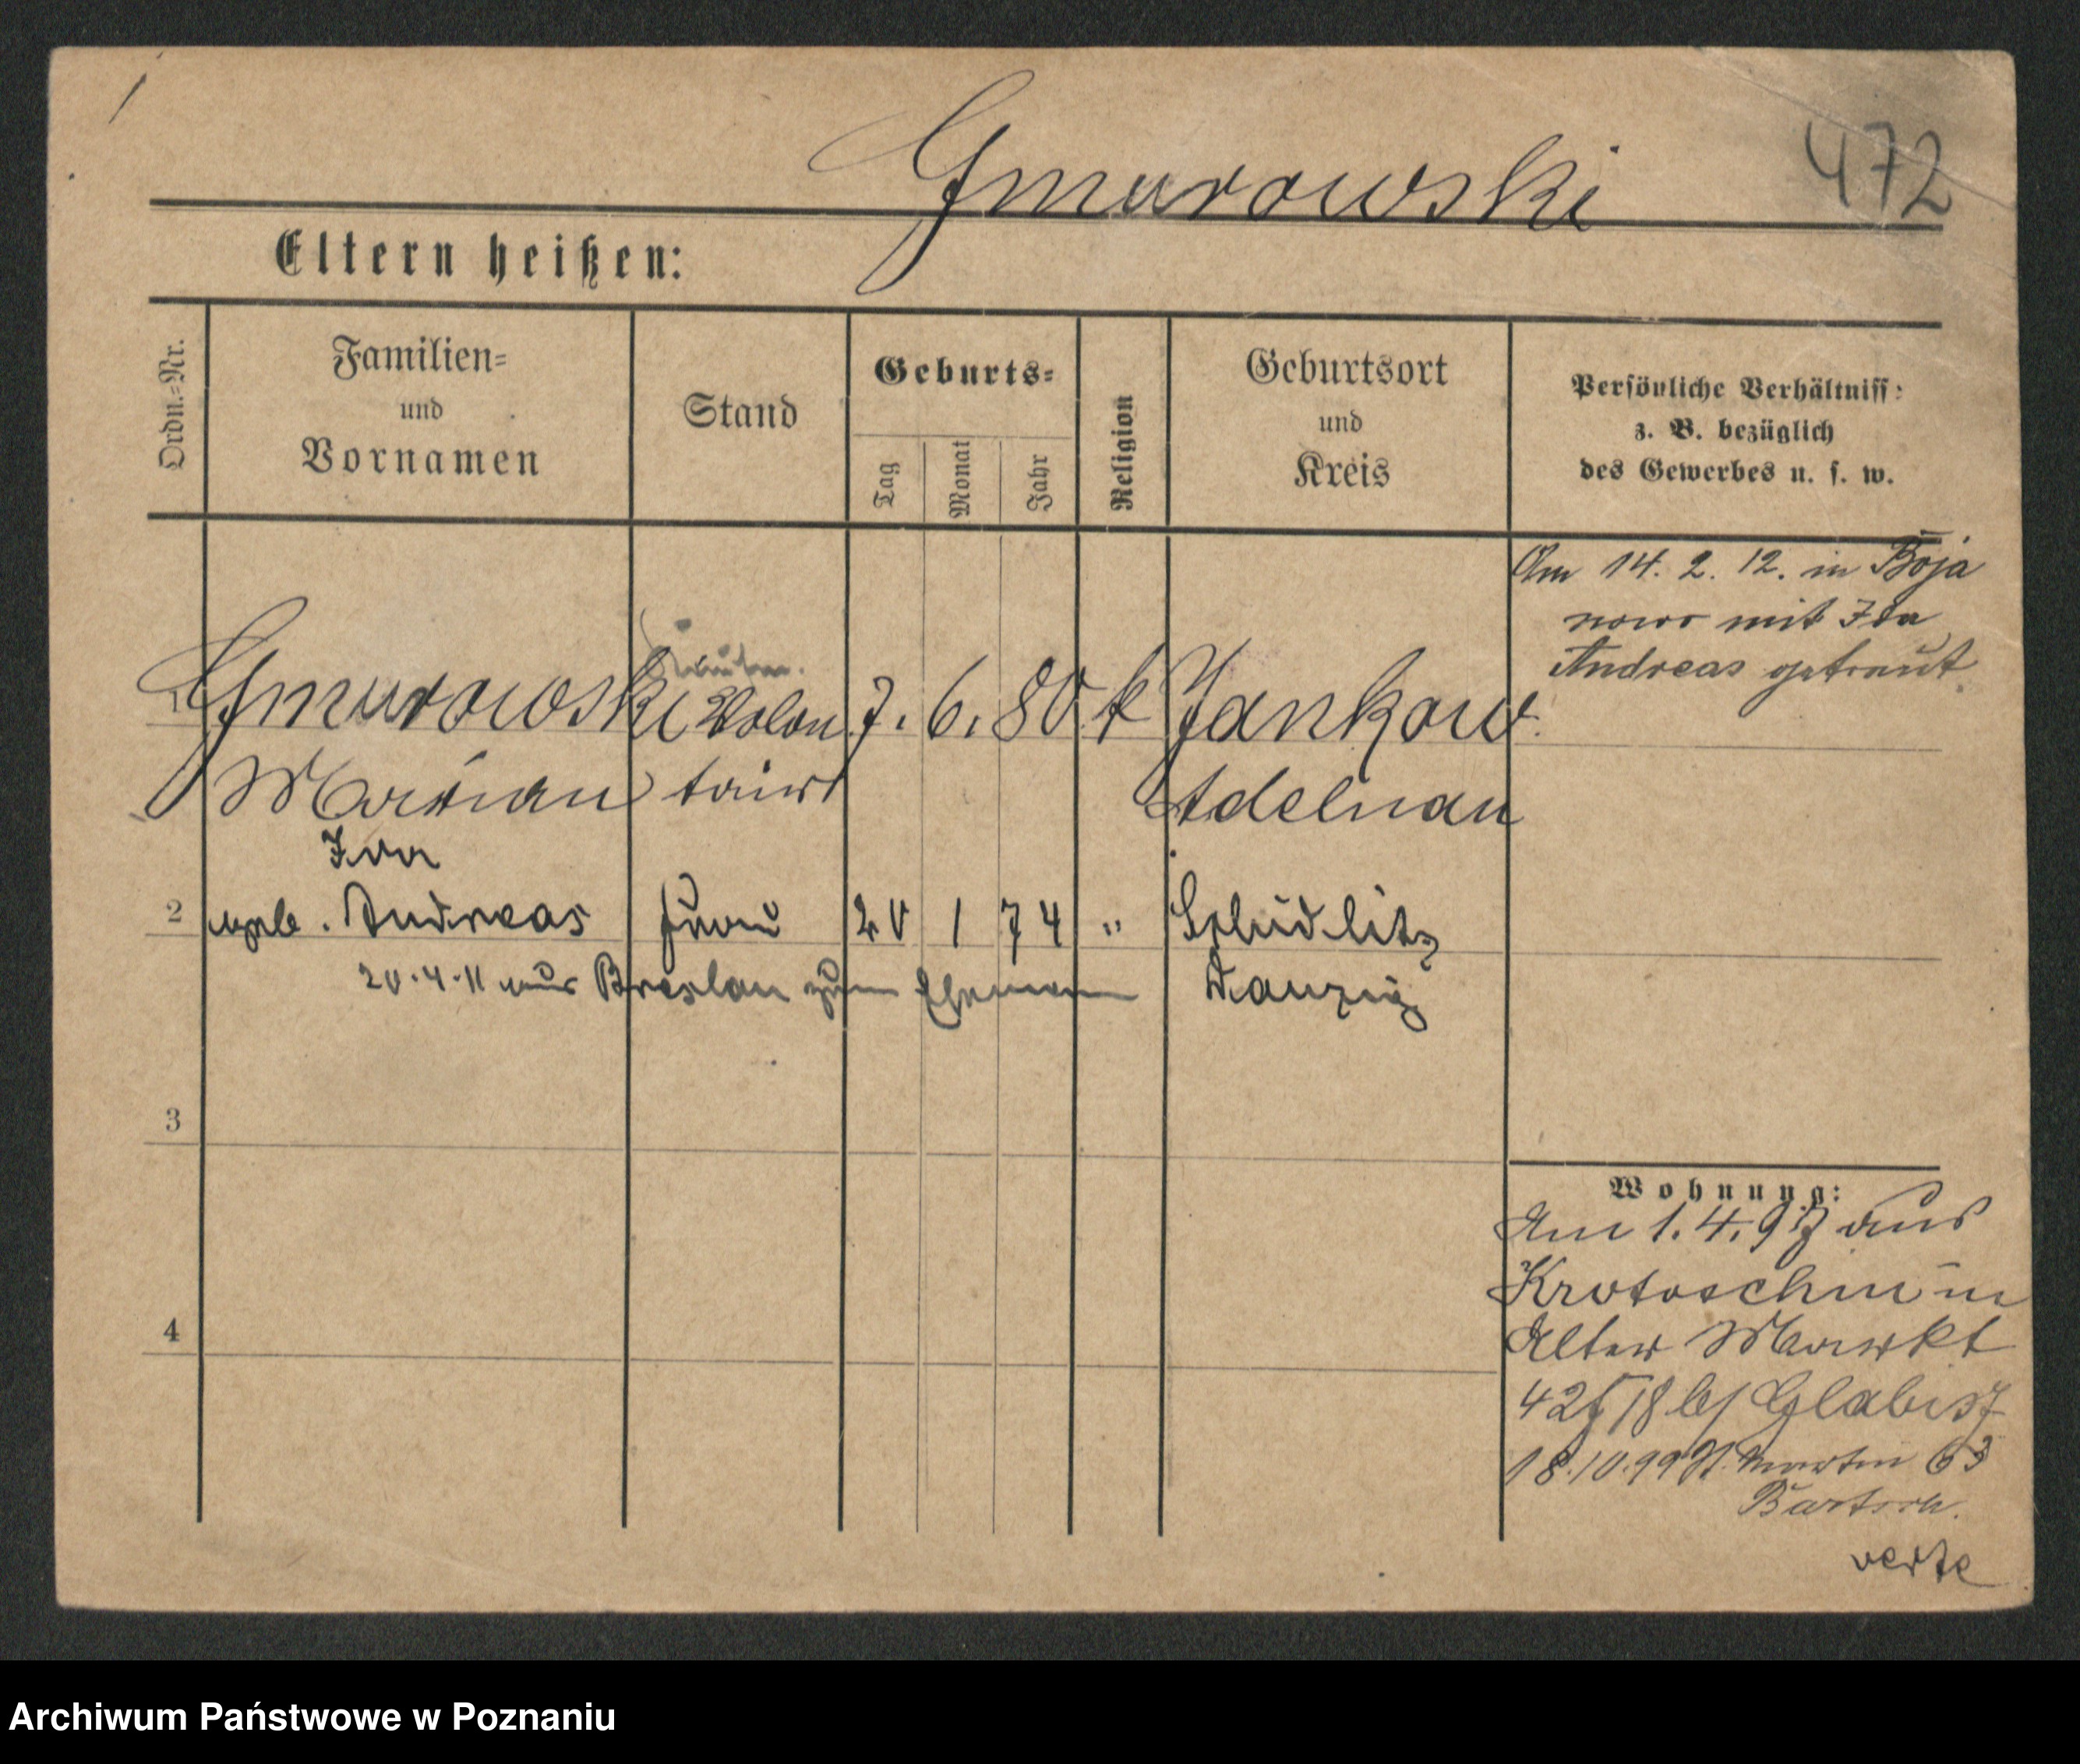 Gmurowski
472
Eltern heißen:
Ordn.=Nr.
Familien=
und
Vornamen
Stand
Geburts=
Tag
Monat
Jahr
Religion
Geburtsort
und
Kreis
Persönliche Verhältniss:
z. B. bezüglich
des Gewerbes u. s. w.
Am 14. 2. 12. in Boja
nowo mit Ida
Andreas getraut
1 Gmurowski Volon 7. 6. 80 k Jankow
Marian tair Adelnau
2 geb. Andreas Frau 20 1 74 " Schidlitz
20.4.11 aus Breslau zum Ehemann Danzig
3
4
Wohnung:
Am 1.4.97 aus
Krotoschin in
Alter Markt
42 bei Glabisz
18.10.99 St. Martin 63
Bartsch.
verte
Archiwum Państwowe w Poznaniu